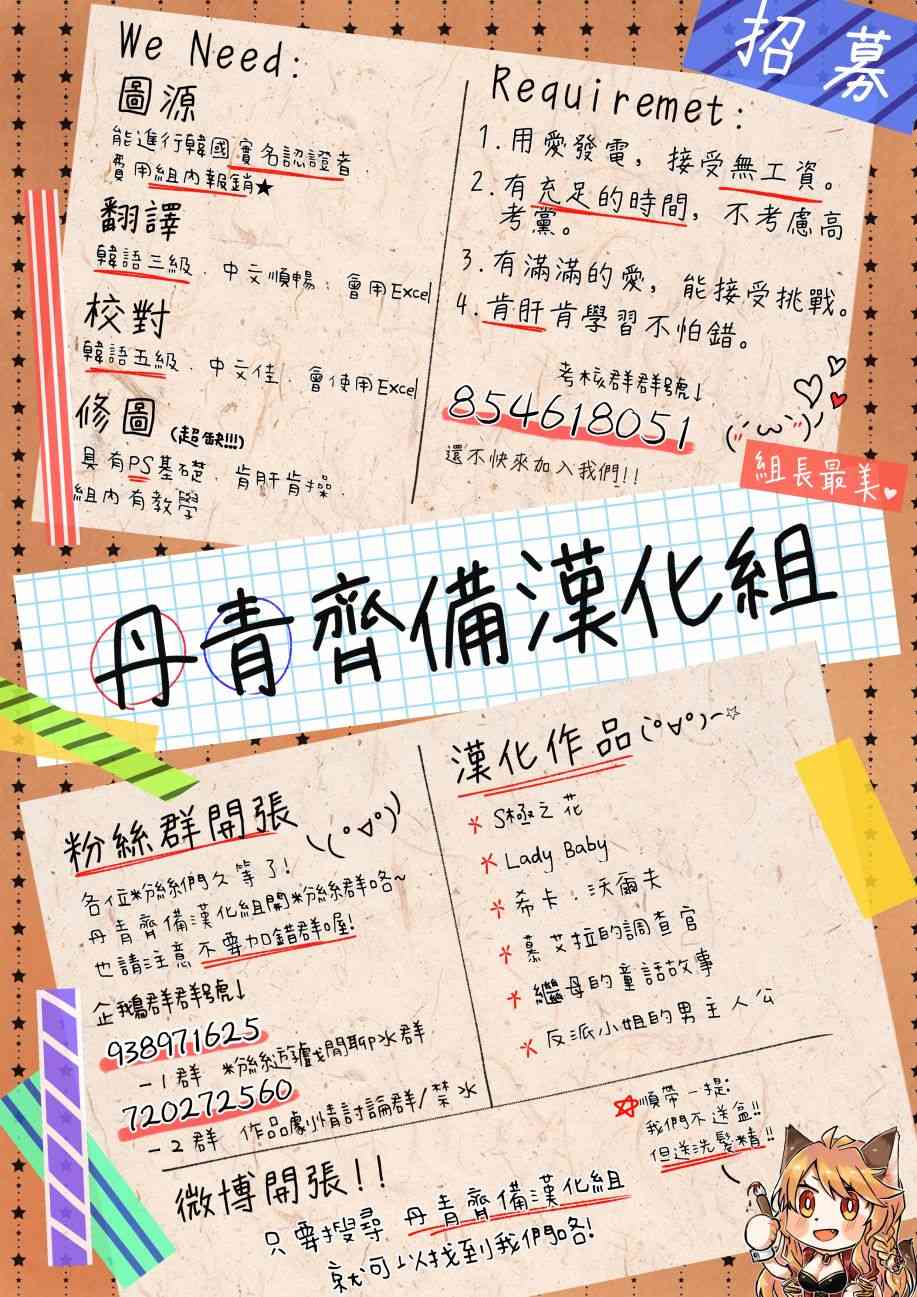 招募
We Need:
圖源
能進行韓國實名認證者.
費用組內報銷★
翻譯
韓語三級.中文順暢.會用Excel
校對
韓語五級.中文佳.會使用Excel
修圖(超缺!!!)
具有PS基礎.肯肝肯操.
組內有教學
Requiremet:
1.用愛發電,接受無工資。
2.有充足的時間,不考慮高
考黨。
3.有滿滿的愛,能接受挑戰。
4.肯肝肯學習不怕錯。
考核群群號↓
854618051
還不快來加入我們!!
組長最美♥
丹青齊備漢化組
粉絲群開張
各位粉絲們久等了!
丹青齊備漢化組開粉絲群咯~
也請注意不要加錯群喔!
企鵝群群號↓
938971625
-1群 粉絲遊戲閒聊水群
720272560
-2群 作品劇情討論群/禁水
漢化作品(°∀°)~☆
* S極之花
* Lady Baby
* 希卡.沃爾夫
* 慕艾拉的調查官
* 繼母的童話故事
* 反派小姐的男主人公
☆順帶一提:
我們不送盒!!
但送洗髮精!!
微博開張!!
只要搜尋 丹青齊備漢化組
就可以找到我們咯!